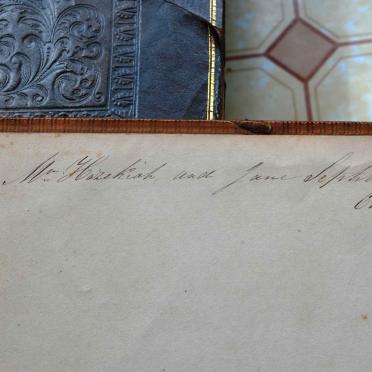 Mr Hezekiah and Jane Seph